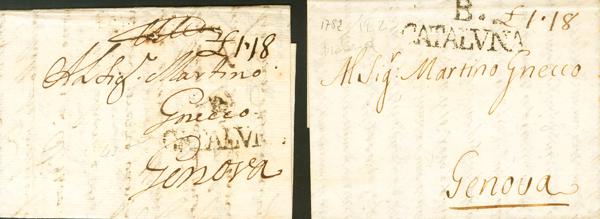 £1·18
Al Sigr. Martino
Gnecco
B.
CATALVÑ
Genova
1782
B.
£1·18
CATALVÑA
Al Sigr. Martino Gnecco
Genova